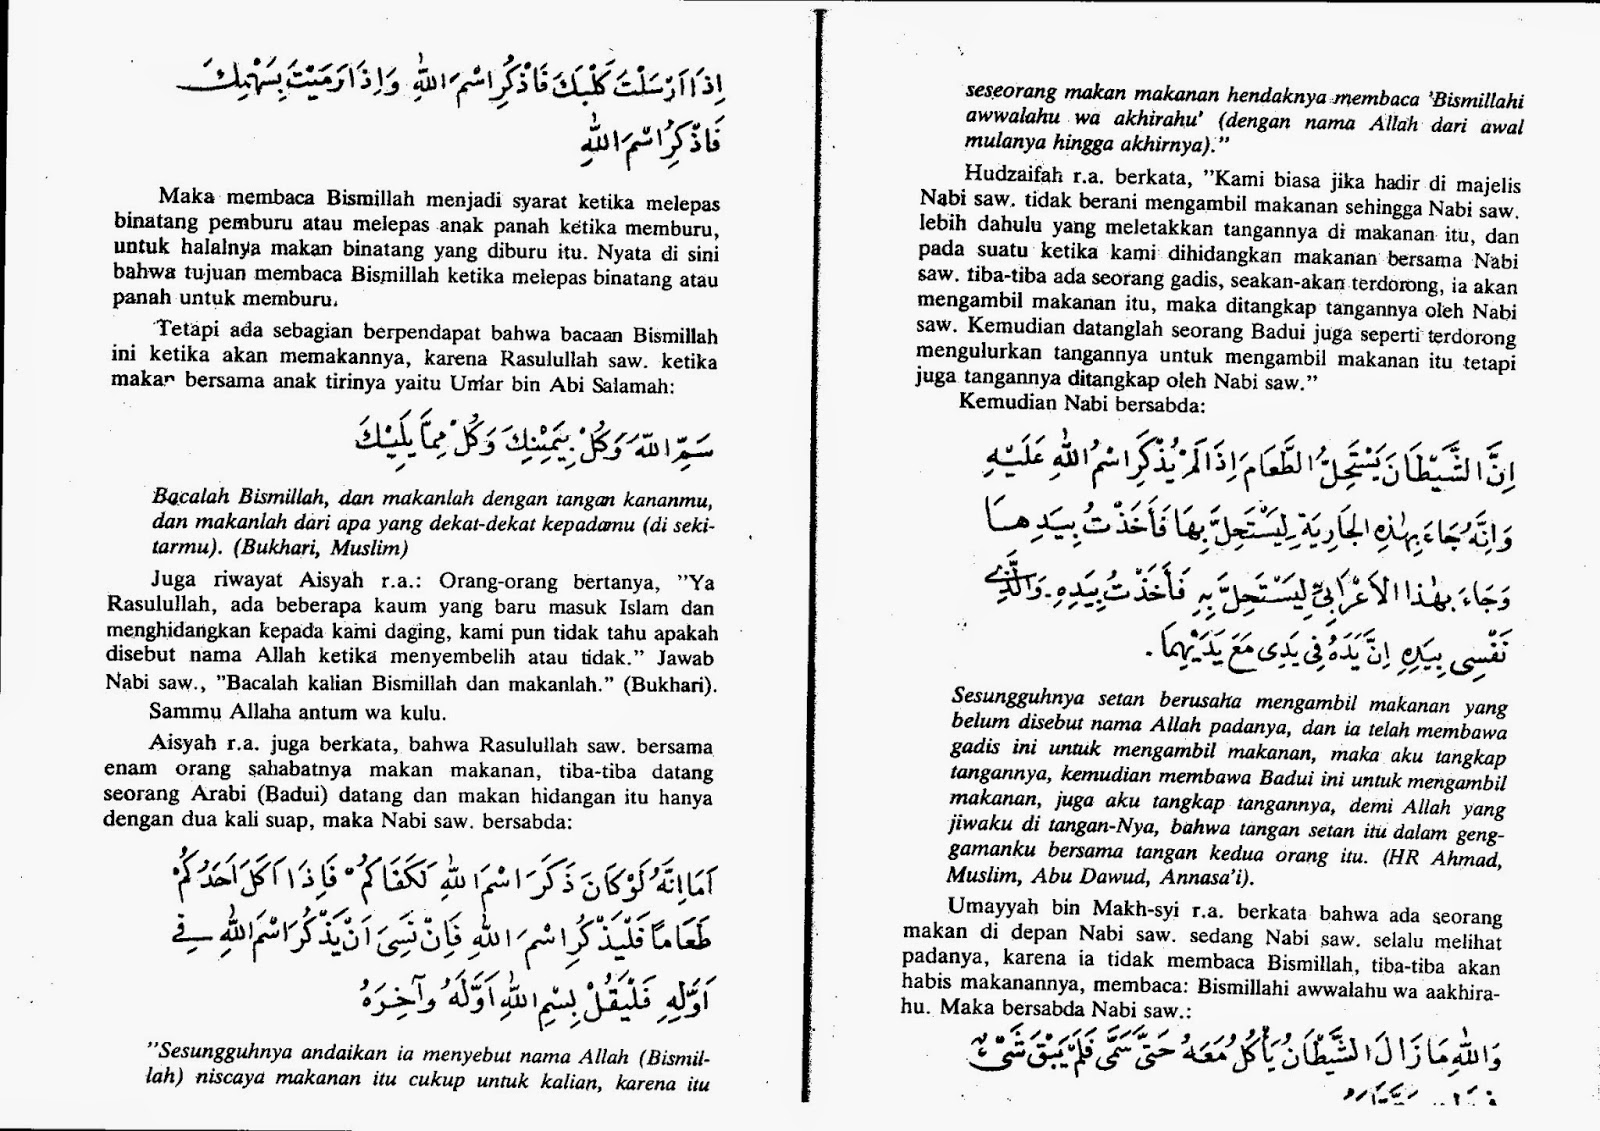 اِذَا اَرْسَلْتَ كَلْبَكَ فَاذْكُرِ اسْمَ اللّٰهِ وَاِذَا رَمَيْتَ بِسَهْمِكَ
فَاذْكُرِ اسْمَ اللّٰهِ
Maka membaca Bismillah menjadi syarat ketika melepas
binatang pemburu atau melepas anak panah ketika memburu,
untuk halalnya makan binatang yang diburu itu. Nyata di sini
bahwa tujuan membaca Bismillah ketika melepas binatang atau
panah untuk memburu.
Tetapi ada sebagian berpendapat bahwa bacaan Bismillah
ini ketika akan memakannya, karena Rasulullah saw. ketika
makan bersama anak tirinya yaitu Umar bin Abi Salamah:
سَمِّ اللّٰهَ وَكُلْ بِيَمِيْنِكَ وَكُلْ مِمَّا يَلِيْكَ
Bacalah Bismillah, dan makanlah dengan tangan kananmu,
dan makanlah dari apa yang dekat-dekat kepadamu (di seki-
tarmu). (Bukhari, Muslim)
Juga riwayat Aisyah r.a.: Orang-orang bertanya, ”Ya
Rasulullah, ada beberapa kaum yang baru masuk Islam dan
menghidangkan kepada kami daging, kami pun tidak tahu apakah
disebut nama Allah ketika menyembelih atau tidak.” Jawab
Nabi saw., ”Bacalah kalian Bismillah dan makanlah.” (Bukhari).
Sammu Allaha antum wa kulu.
Aisyah r.a. juga berkata, bahwa Rasulullah saw. bersama
enam orang sahabatnya makan makanan, tiba-tiba datang
seorang Arabi (Badui) datang dan makan hidangan itu hanya
dengan dua kali suap, maka Nabi saw. bersabda:
اَمَا اِنَّهُ لَوْ كَانَ ذَكَرَ اسْمَ اللّٰهِ لَكَفَاكُمْ فَاِذَا اَكَلَ اَحَدُكُمْ
طَعَامًا فَلْيَذْكُرِ اسْمَ اللّٰهِ فَاِنْ نَسِيَ اَنْ يَذْكُرَ اسْمَ اللّٰهِ فِي
اَوَّلِهِ فَلْيَقُلْ بِسْمِ اللّٰهِ اَوَّلَهُ وَاٰخِرَهُ
”Sesungguhnya andaikan ia menyebut nama Allah (Bismil-
lah) niscaya makanan itu cukup untuk kalian, karena itu
seseorang makan makanan hendaknya membaca ’Bismillahi
awwalahu wa akhirahu’ (dengan nama Allah dari awal
mulanya hingga akhirnya).”
Hudzaifah r.a. berkata, ”Kami biasa jika hadir di majelis
Nabi saw. tidak berani mengambil makanan sehingga Nabi saw.
lebih dahulu yang meletakkan tangannya di makanan itu, dan
pada suatu ketika kami dihidangkan makanan bersama Nabi
saw. tiba-tiba ada seorang gadis, seakan-akan terdorong, ia akan
mengambil makanan itu, maka ditangkap tangannya oleh Nabi
saw. Kemudian datanglah seorang Badui juga seperti terdorong
mengulurkan tangannya untuk mengambil makanan itu tetapi
juga tangannya ditangkap oleh Nabi saw.”
Kemudian Nabi bersabda:
اِنَّ الشَّيْطَانَ يَسْتَحِلُّ الطَّعَامَ اِذَا لَمْ يُذْكَرِ اسْمُ اللّٰهِ عَلَيْهِ
وَاِنَّهُ جَاءَ بِهٰذِهِ الْجَارِيَةِ لِيَسْتَحِلَّ بِهَا فَاَخَذْتُ بِيَدِهَا
وَجَاءَ بِهٰذَا الْاَعْرَابِيِّ لِيَسْتَحِلَّ بِهِ فَاَخَذْتُ بِيَدِهِ. وَالَّذِي
نَفْسِي بِيَدِهِ اِنَّ يَدَهُ فِي يَدِي مَعَ يَدَيْهِمَا.
Sesungguhnya setan berusaha mengambil makanan yang
belum disebut nama Allah padanya, dan ia telah membawa
gadis ini untuk mengambil makanan, maka aku tangkap
tangannya, kemudian membawa Badui ini untuk mengambil
makanan, juga aku tangkap tangannya, demi Allah yang
jiwaku di tangan-Nya, bahwa tangan setan itu dalam geng-
gamanku bersama tangan kedua orang itu. (HR Ahmad,
Muslim, Abu Dawud, Annasa’i).
Umayyah bin Makh-syi r.a. berkata bahwa ada seorang
makan di depan Nabi saw. sedang Nabi saw. selalu melihat
padanya, karena ia tidak membaca Bismillah, tiba-tiba akan
habis makanannya, membaca: Bismillahi awwalahu wa aakhira-
hu. Maka bersabda Nabi saw.:
وَاللّٰهِ مَا زَالَ الشَّيْطَانُ يَأْكُلُ مَعَهُ حَتّٰى سَمَّى فَلَمْ يَبْقَ شَيْءٌ